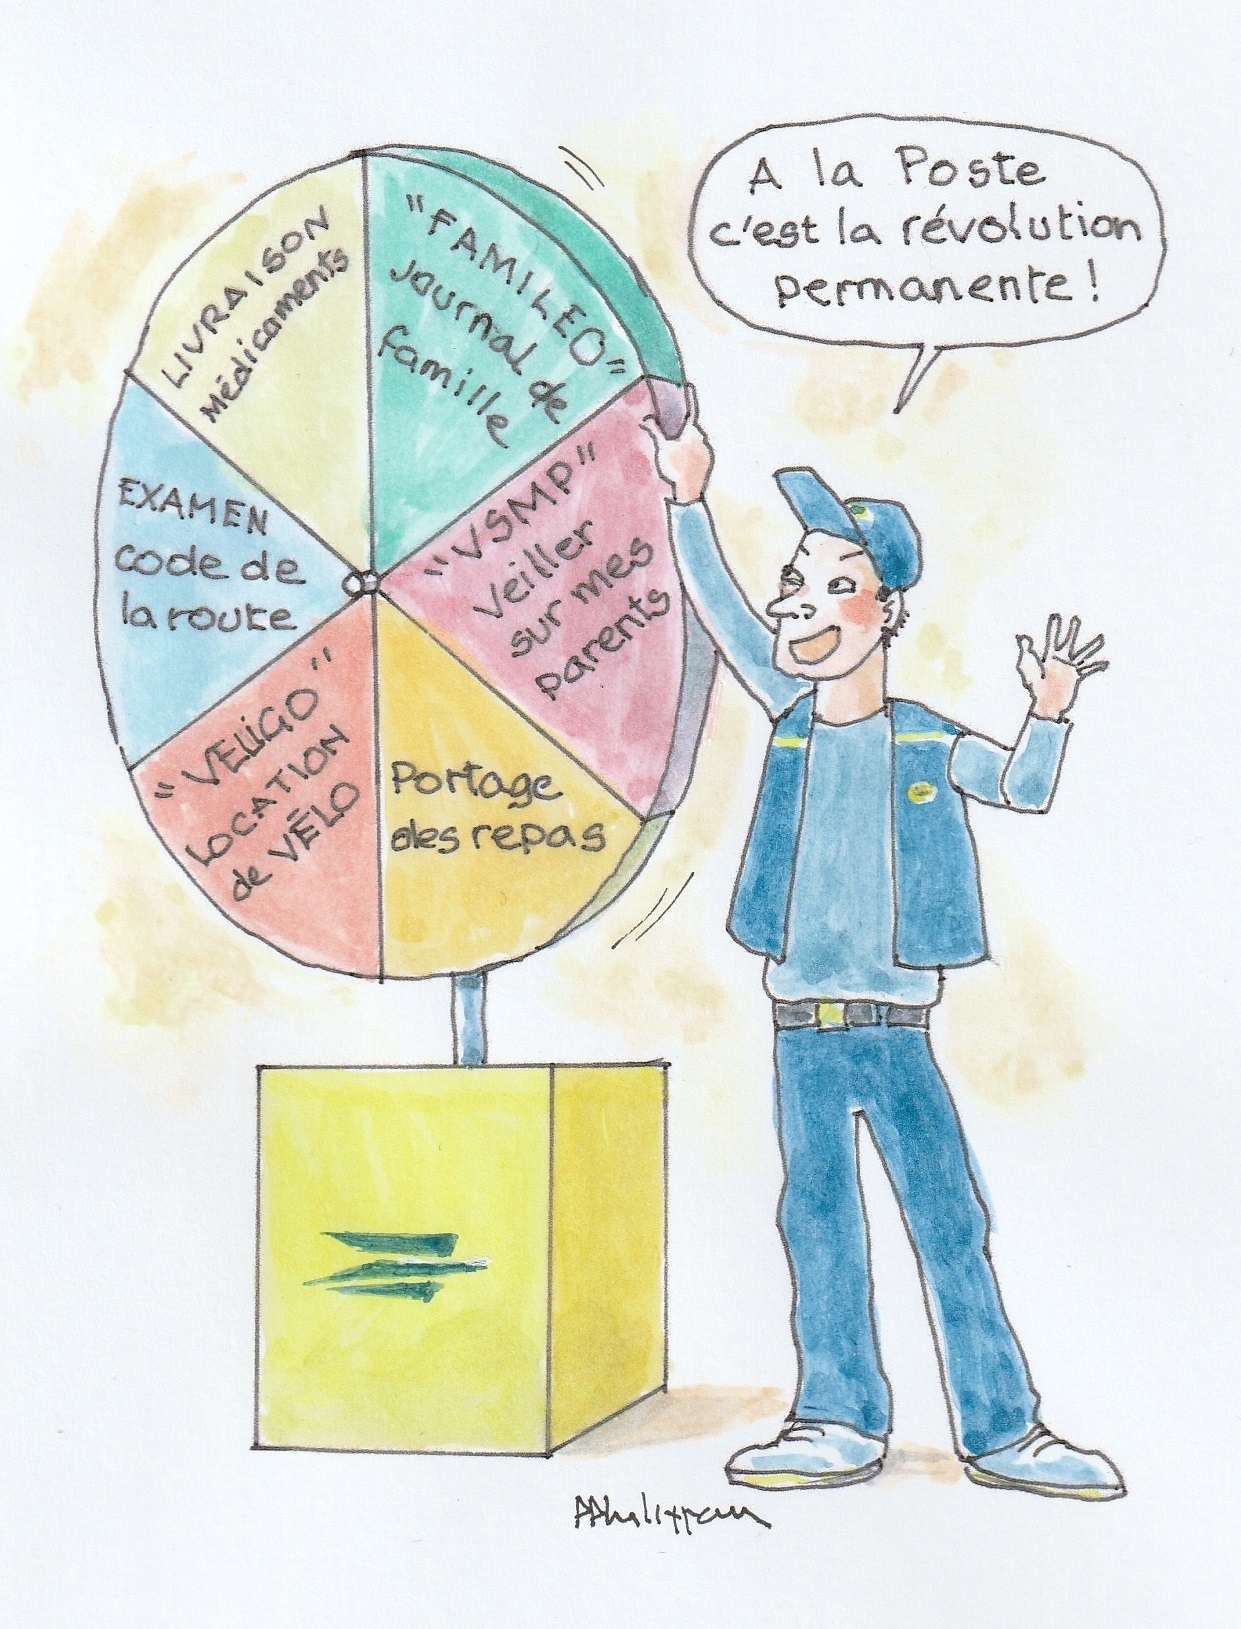 A la Poste
c'est la révolution
permanente !
LIVRAISON
Médicaments
"FAMILEO"
Journal de
famille
EXAMEN
code de
la route
"VSMP"
Veiller
sur mes
parents
"VELIGO"
LOCATION
de VÉLO
Portage
des repas